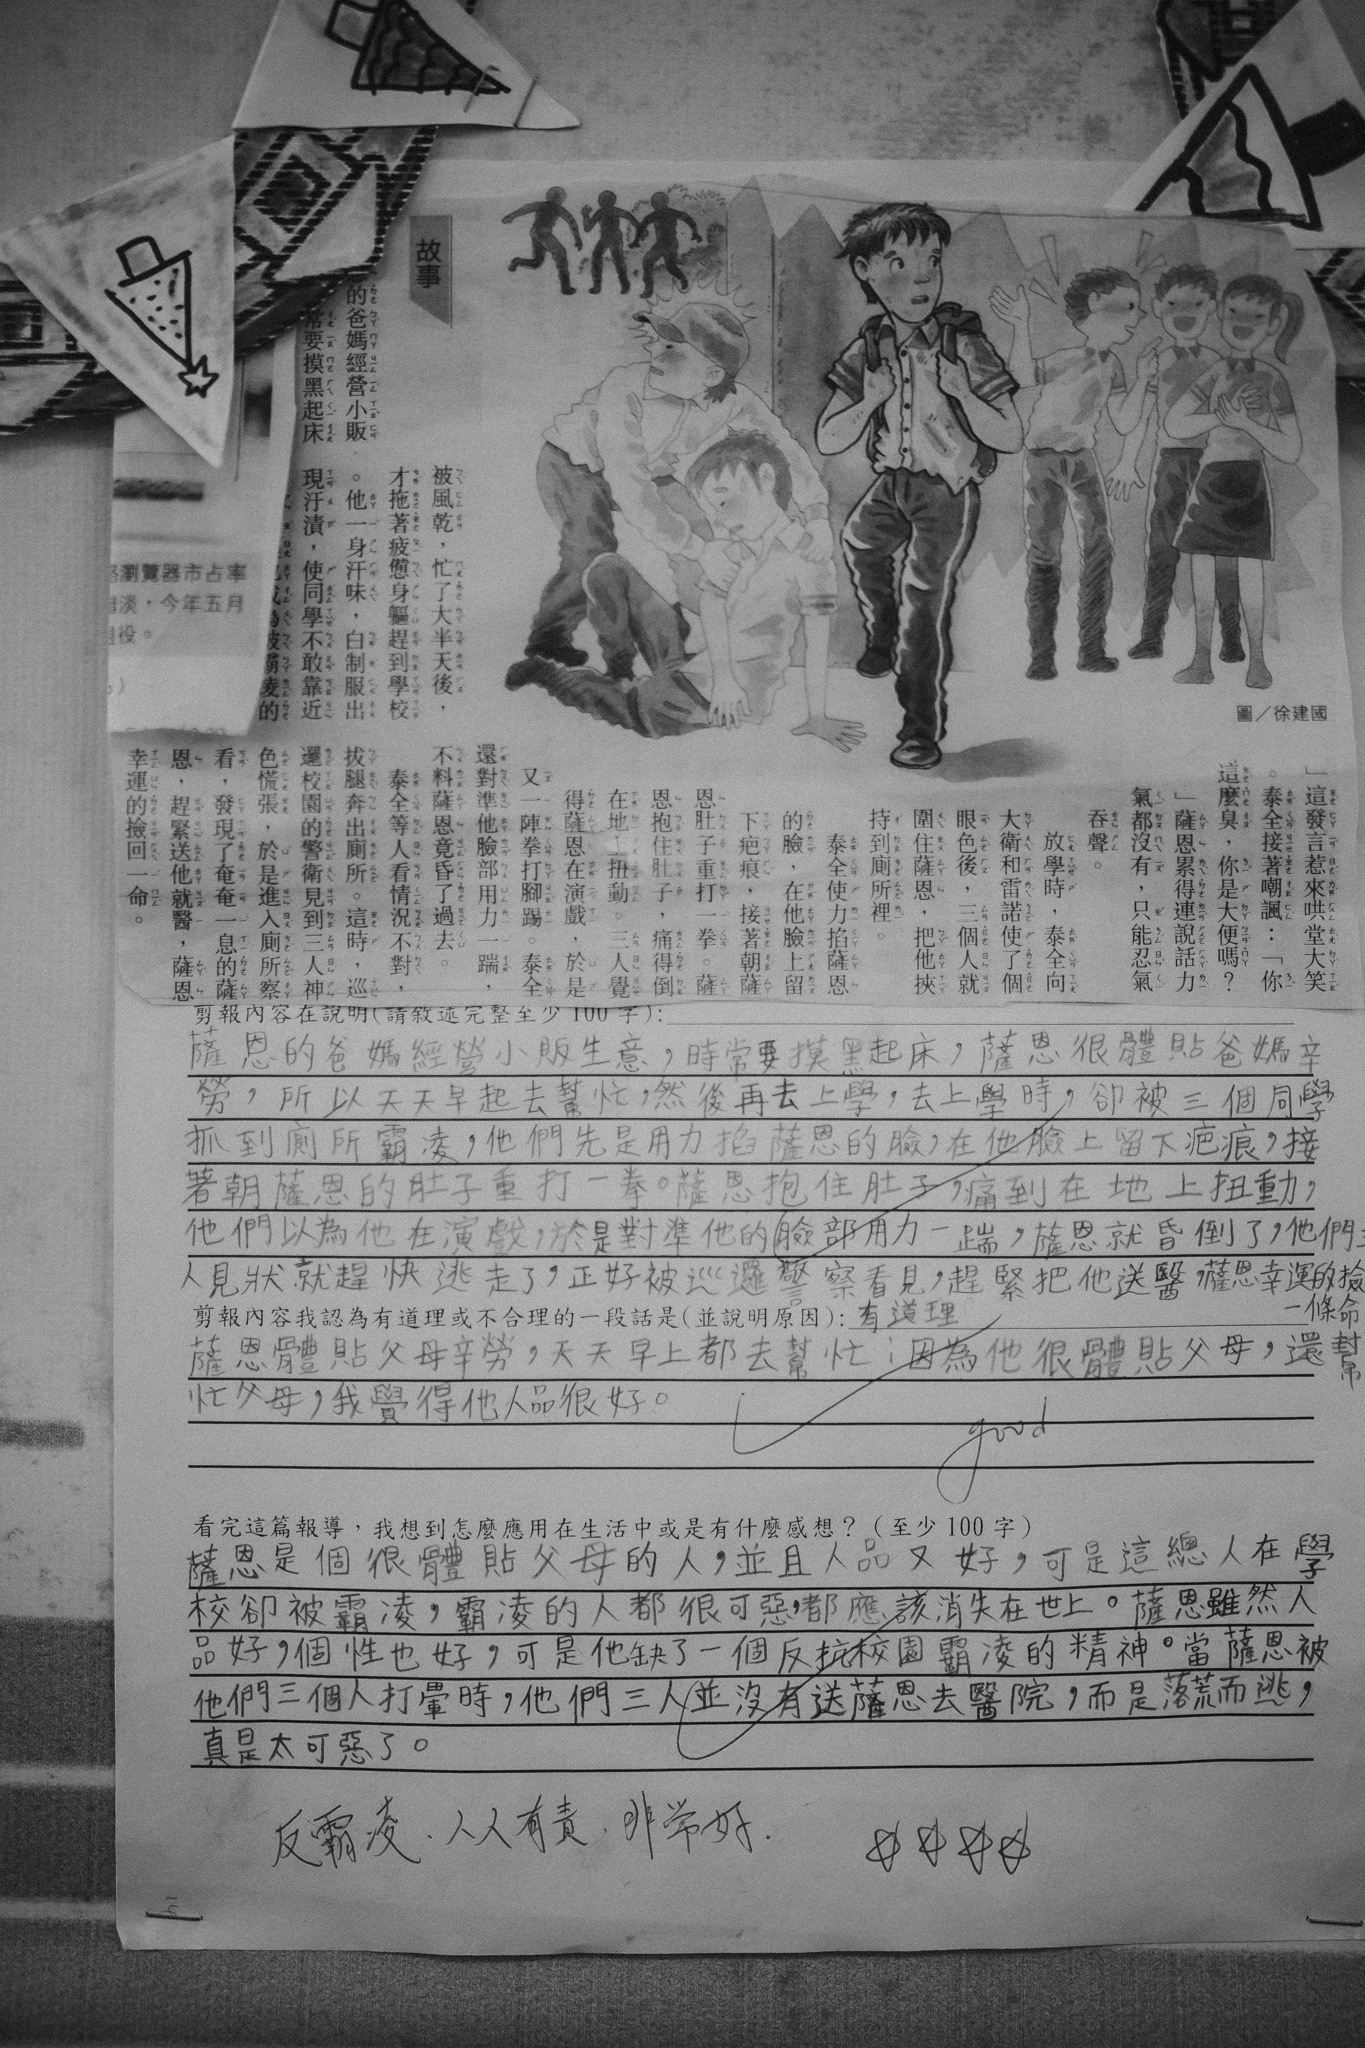 故事
的爸媽經營小販
常要摸黑起床
被風乾，忙了大半天後，
才拖著疲憊身軀趕到學校
。他一身汗味，白制服出
現汗漬，使同學不敢靠近
凌的
圖／徐建國
」這發言惹來哄堂大笑
。泰全接著嘲諷：「你
這麼臭，你是大便嗎？
」薩恩累得連說話力
氣都沒有，只能忍氣
吞聲。
放學時，泰全向
大衛和雷諾使了個
眼色後，三個人就
圍住薩恩，把他挾
持到廁所裡。
泰全使力掐薩恩
的臉，在他臉上留
下疤痕，接著朝薩
恩肚子重打一拳。薩
恩抱住肚子，痛得倒
在地上扭動。三人覺
得薩恩在演戲，於是
又一陣拳打腳踢。泰全
還對準他臉部用力一踹，
不料薩恩竟昏了過去。
泰全等人看情況不對，
拔腿奔出廁所。這時，巡
邏校園的警衛見到三人神
色慌張，於是進入廁所察
看，發現了奄奄一息的薩
恩，趕緊送他就醫，薩恩
幸運的撿回一命。
瀏覽器市占率
淡，今年五月
役。
剪報內容在說明(請敘述完整至少100字)：
薩恩的爸媽經營小販生意，時常要摸黑起床，薩恩很體貼爸媽辛
勞，所以天天早起去幫忙，然後再去上學，去上學時，卻被三個同學
抓到廁所霸凌，他們先是用力掐薩恩的臉，在他臉上留下疤痕，接
著朝薩恩的肚子重打一拳。薩恩抱住肚子，痛到在地上扭動，
他們以為他在演戲，於是對準他的臉部用力一踹，薩恩就昏倒了，他們三
人見狀就趕快逃走了，正好被巡邏警察看見，趕緊把他送醫，薩恩幸運的撿
一條命
剪報內容我認為有道理或不合理的一段話是(並說明原因)：有道理
薩恩體貼父母辛勞，天天早上都去幫忙；因為他很體貼父母，還幫
忙父母，我覺得他人品很好。
good
看完這篇報導，我想到怎麼應用在生活中或是有什麼感想？（至少100字）
薩恩是個很體貼父母的人，並且人品又好，可是這總人在學
校卻被霸凌，霸凌的人都很可惡，都應該消失在世上。薩恩雖然人
品好，個性也好，可是他缺了一個反抗校園霸凌的精神。當薩恩被
他們三個人打暈時，他們三人並沒有送薩恩去醫院，而是落荒而逃，
真是太可惡了。
反霸凌、人人有責、非常好.